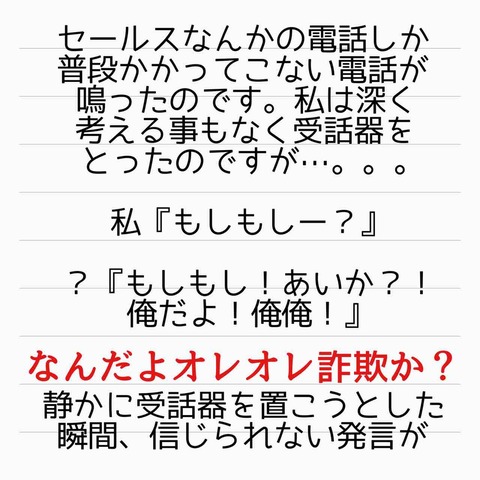 セールスなんかの電話しか
普段かかってこない電話が
鳴ったのです。私は深く
考える事もなく受話器を
とったのですが…。。。
私『もしもしー？』
？『もしもし！あいか？！
俺だよ！俺俺！』
なんだよオレオレ詐欺か？
静かに受話器を置こうとした
瞬間、信じられない発言が